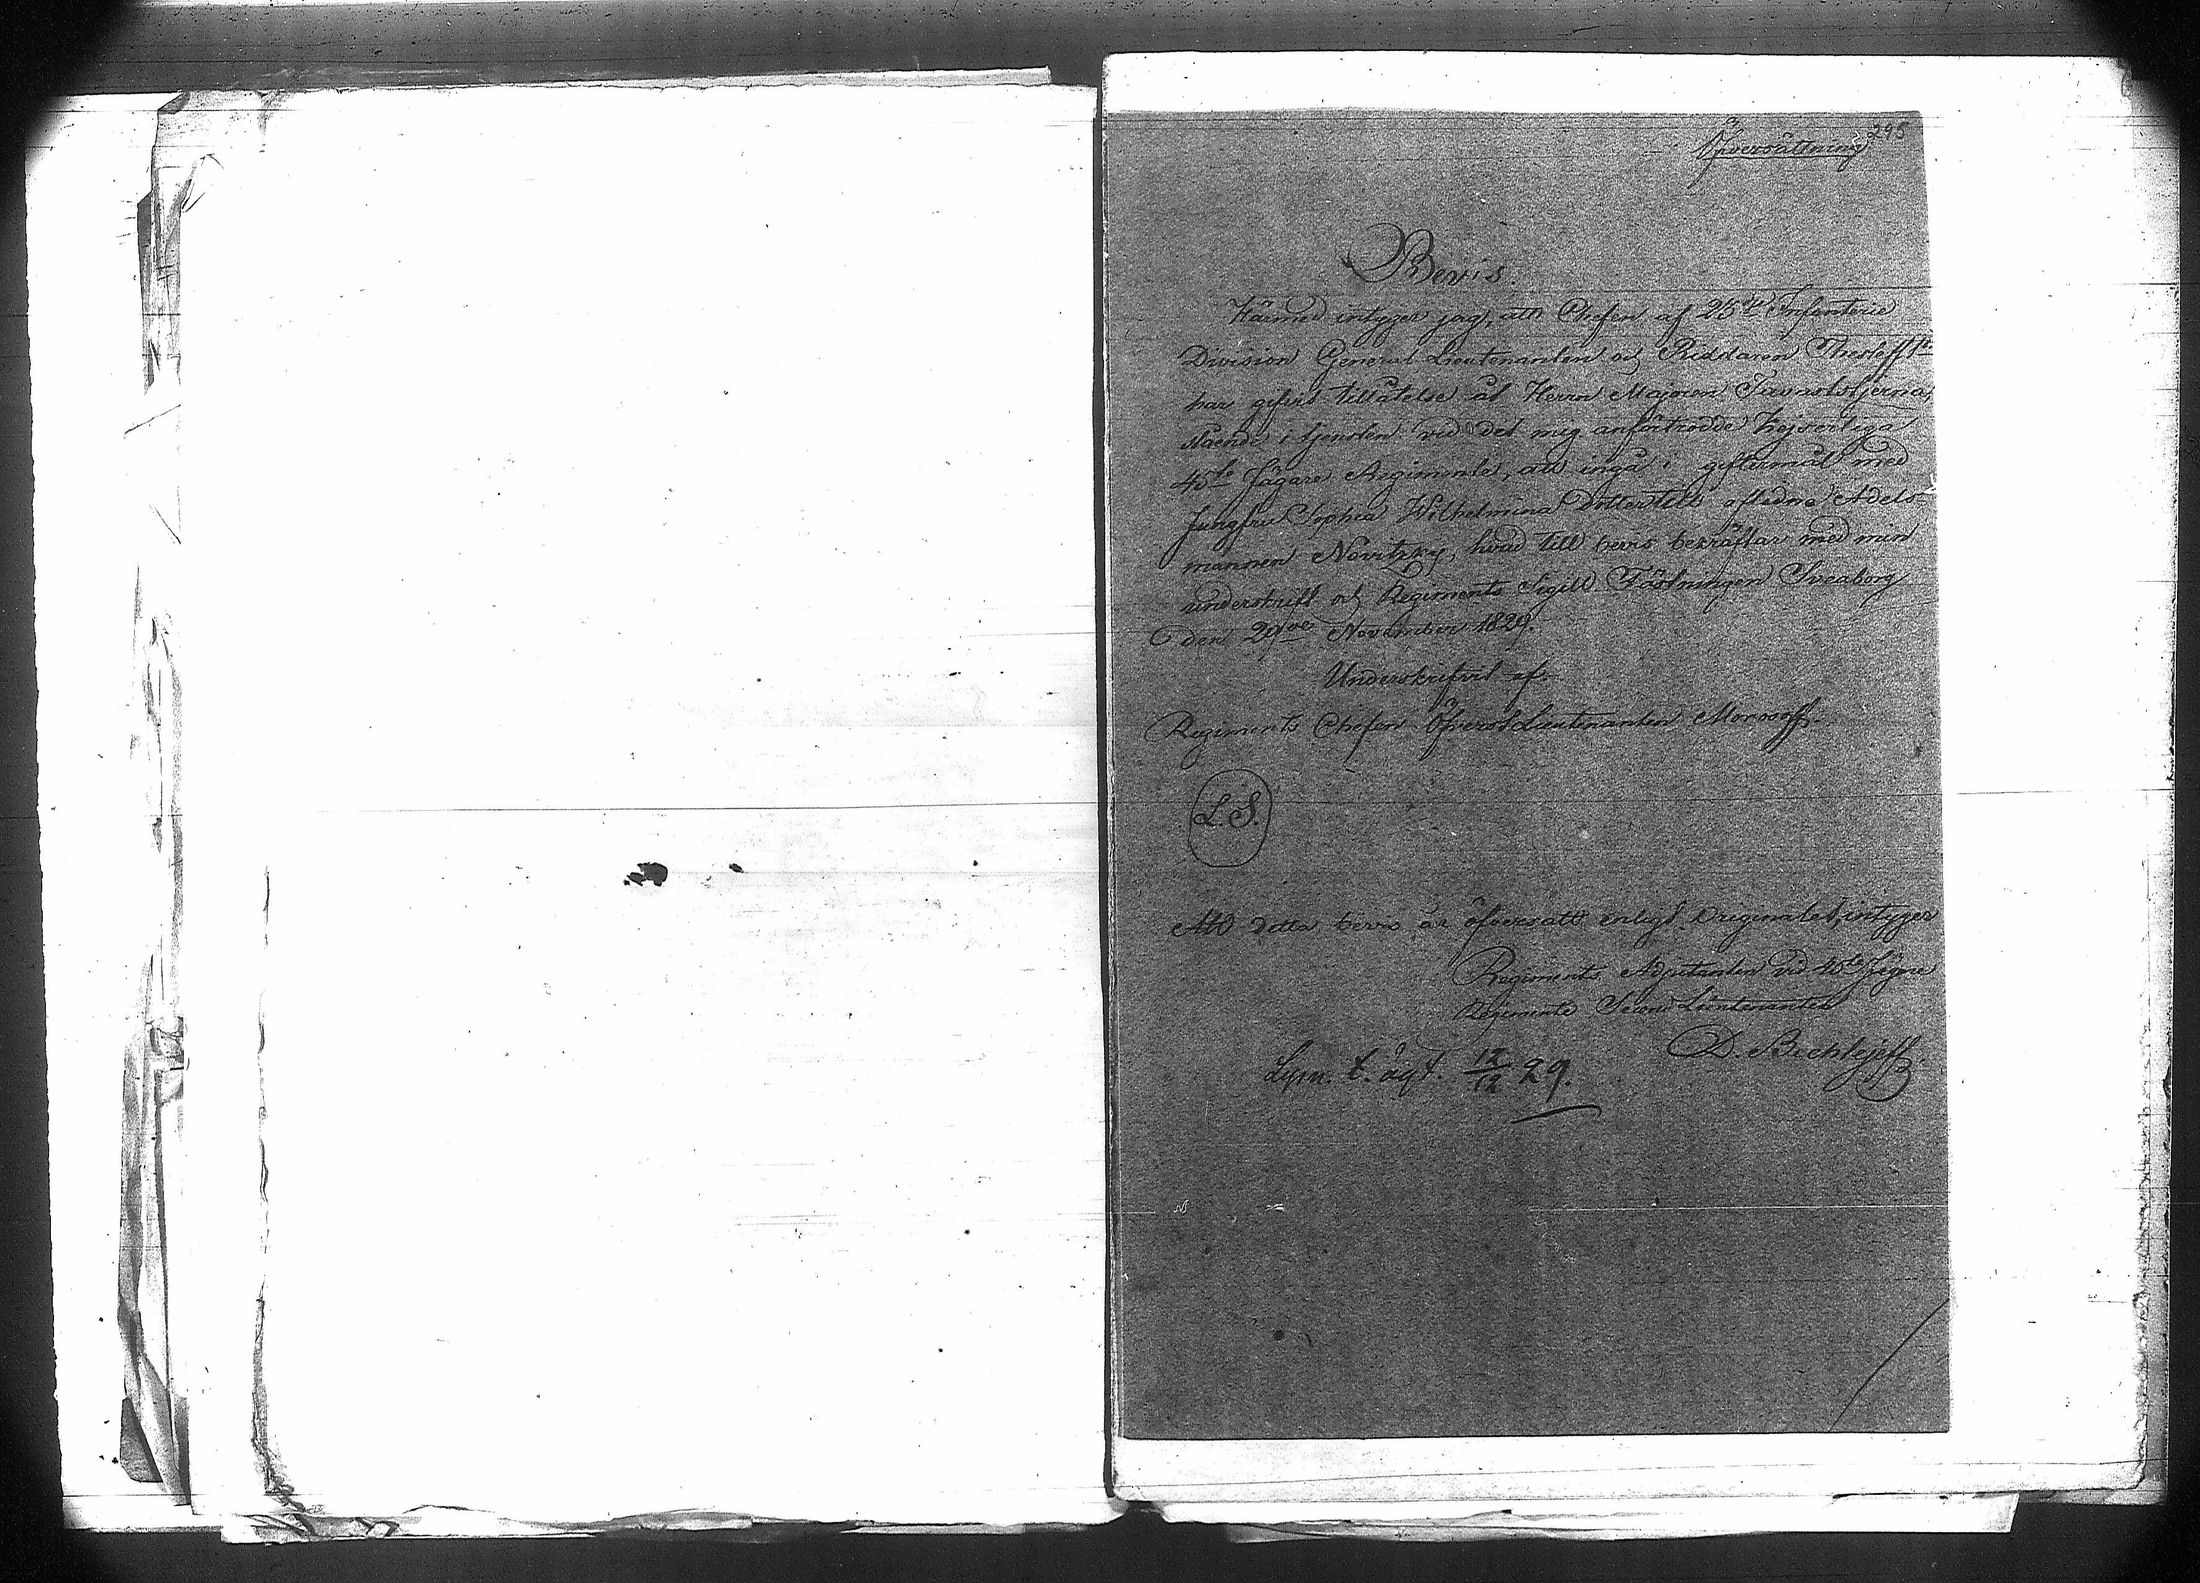 295
Öfversättning
Bevis.
Härmed intyger jag, att Chefen af 25te Infanterie
Division General Lieutenanten och Riddaren Thesleff 1te
har gifvit tillåtelse åt Herrn Majoren Tavaststjerna,
stående i tjensten vid det mig anförtrodde Kejserliga
45te Jägare Regimente, att ingå i giftermål med
Jungfru Sophia Wilhelmina Dotter till aflidne Adels
mannen Novitzky, hvad till bevis bekräftar med min
underskrift och Regiments Sigill. Fästningen Sveaborg
den November 1829.
Underskrifvit af
Regiments Chefen Öfverstelieutenanten Morosoff.
L.S.
Att detta bevis är öfversatt enligt Originalet, intyger
Regiments Adjutanten vid 45te Jägare
Regimente Second Lieutenanten
D. Bechlejeff.
Lysn. t. ägt. 12/12 29.